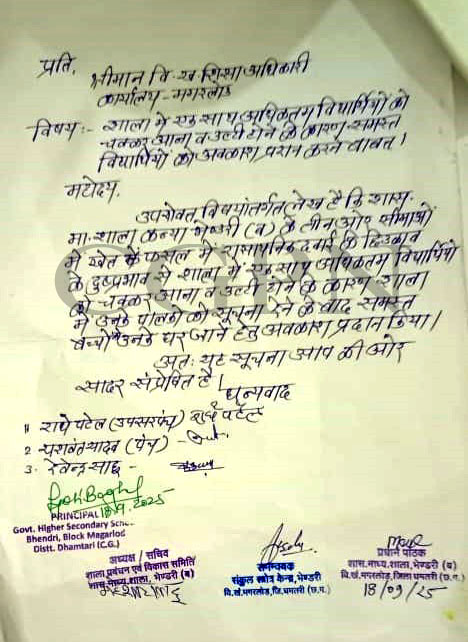 प्रति,
श्रीमान वि. ख. शिक्षा अधिकारी
कार्यालय - मगरलोड
विषय :- शाला में एक साथ अधिकतम विद्यार्थियों को
चक्कर आना व उल्टी होने के कारण समस्त
विद्यार्थियों को अवकाश प्रदान करने बाबत।
महोदय,
उपरोक्त विषयांतर्गत लेख है कि शास.
मा. शाला कन्या भेण्डरी (ब) के तीन ओर सीमाओं
में खेत के फसल में रासायनिक दवाई के छिड़काव
के दुष्प्रभाव से शाला में एक साथ अधिकतम विद्यार्थियों
को चक्कर आना व उल्टी होने के कारण शाला
में उनके पालकों को सूचना देने के बाद समस्त
बच्चों को उनके घर जाने हेतु अवकाश प्रदान किया।
अतः यह सूचना आप की ओर
सादर संप्रेषित है।
धन्यवाद
1) राधे पटेल (उपसरपंच)
2 यशवंत यादव (पंच) -
3. देवेन्द्र साहू -
18/9/2025
PRINCIPAL
Govt. Higher Secondary Scho
Bhendri, Block Magarlod
Distt. Dhamtari (C.G.)
अध्यक्ष / सचिव
शाला प्रबंधन एवं विकास समिति
शास.माध्य.शाला, भेण्डरी (ब)
समन्वयक
संकुल स्रोत केन्द्र, भेण्डरी
वि.खं.मगरलोड, जि.धमतरी (छ.ग.)
प्रधान पाठक
शास.माध्य.शाला, भेण्डरी (ब)
वि.खं.मगरलोड, जिला धमतरी (छ.ग.)
18/09/25